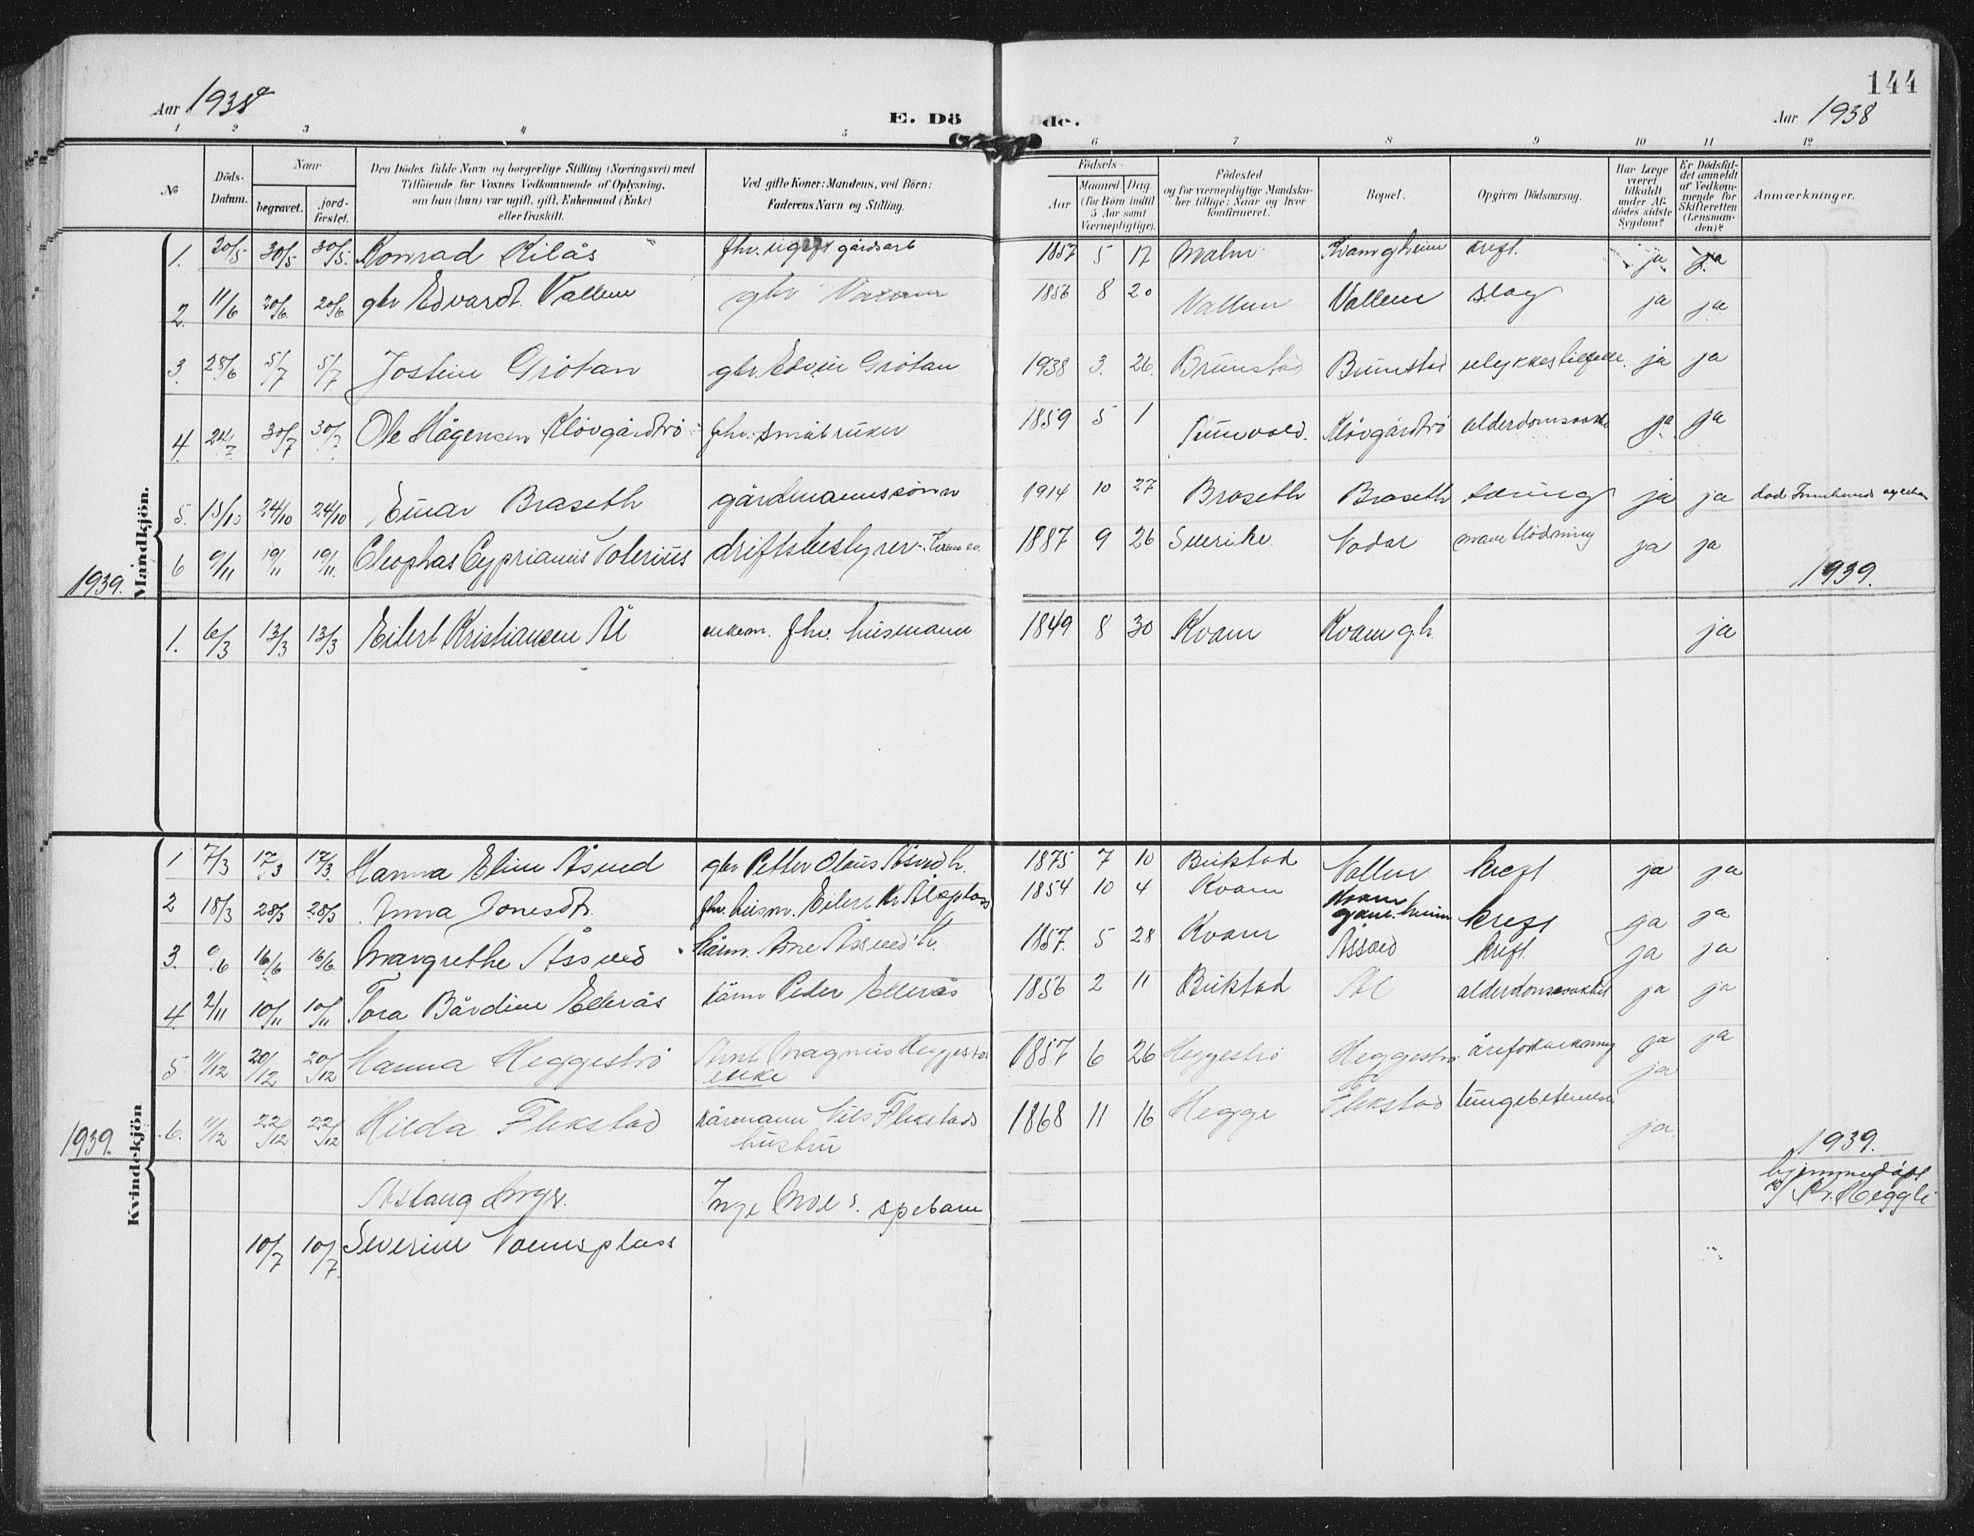 144
Aar 1938
E. Dö de.
Aar 1938
1 2 3 4 5 6 7 8 9 10 11 12
No
Döds-Datum.
Naar
begravet.
jordfæstet.
Den Dödes fulde Navn og borgerlige Stilling (Næringsvei) med Tilföiende for Voxnes Vedkommende af Oplysning, om han (hun) var ugift, gift, Enkemand (Enke) eller fraskilt.
Ved gifte Koner: Mandens, ved Börn: Faderens Navn og Stilling.
Födsels-
Aar
Maaned Dag
(for Börn indtil 5 Aar samt Værnepligtige).
Födested og for værnepligtige Mandskaber tillige: Naar og hvor konfirmeret.
Bopæl.
Opgiven Dödsaarsag.
Har Læge været tilkaldt under Afdödes sidste Sygdom?
Er Dödsfaldet anmeldt af Vedkommende for Skifteretten (Lensmanden)?
Anmærkninger.
Mandkjön.
1. 20/5 30/5 30/5. Konrad Kilås fhv. ugift gårdsarb 1857 5 17 Malm Kvamgheim kreft. ja ja
2. 11/6 20/6 20/6 gbr Edvardt Vallem gbr 1856 8 20 Vallem Vallem slag ja ja
3. 28/6 5/7 5/7 Jostein Grötan gbr. Edvin Grötan 1938 3. 26. Brunstad Brunstad ulykkestilfelle. ja ja
4. 24/7 30/7 30/7 Ole Hågensen Klövgårdtrö fhv. småbruker 1859 5 1 Klövgårdtrö ja ja
5. 15/10 24/10 24/10 Einar Braseth gårdmannssönn 1914 10 27 Braseth Braseth tæring ja ja
6 9/11 19/11 19/11. Cleophas Cyprianus Valerius driftsbestyrer 1887 9 26 Sverike Vodar maveblödning ja ja
1939. 1939.
1. 6/3 13/3 13/3 Eilert Kristiansen Ål enkem. fhv. husmann 1849 8 30 Kvam Kvam gh. ja
Kvindekjön
1 7/3 17/3 17/3. Hanna Eline Åsved gbr Petter Olaus Åsved h. 1875 7 10 Bukstad Vallem kreft ja ja
2 18/3 28/3 28/3 Anna Jonesdt. fhv. husm. Eilert Kr Ålsplass 1854 10 4 Kvam Kvam gamleheim kreft ja ja
3. 9/6 16/6 16/6. Margrethe Åssved kårm. Arne Åssved h. 1857. 5 28 Kvam Åssved kreft ja ja
4. 2/11 10/11 10/11 Tora Bårdine Elleraas kårm Peder Elleraas 1856 2 11 Bukstad Ål alderdomssvakhet ja ja
5 11/12 20/12 20/12 Hanna Heggeströ Arnt Magnus Heggeströ enke 1857 6 26 Heggeströ Heggeströ åreforkalkning ja ja
ja
6. 11/12 22/12 22/12 Hilda Flekstad kårmann Nils Flekstads hustru 1868 11 16 Hegge Flekstad lungebetennelse ja
1939. 1939.
Aslaug Inge Moe's. spebarn hjemmedöpt v/ Kr. Heggli
10/7 10/7. Severine Voemsplass